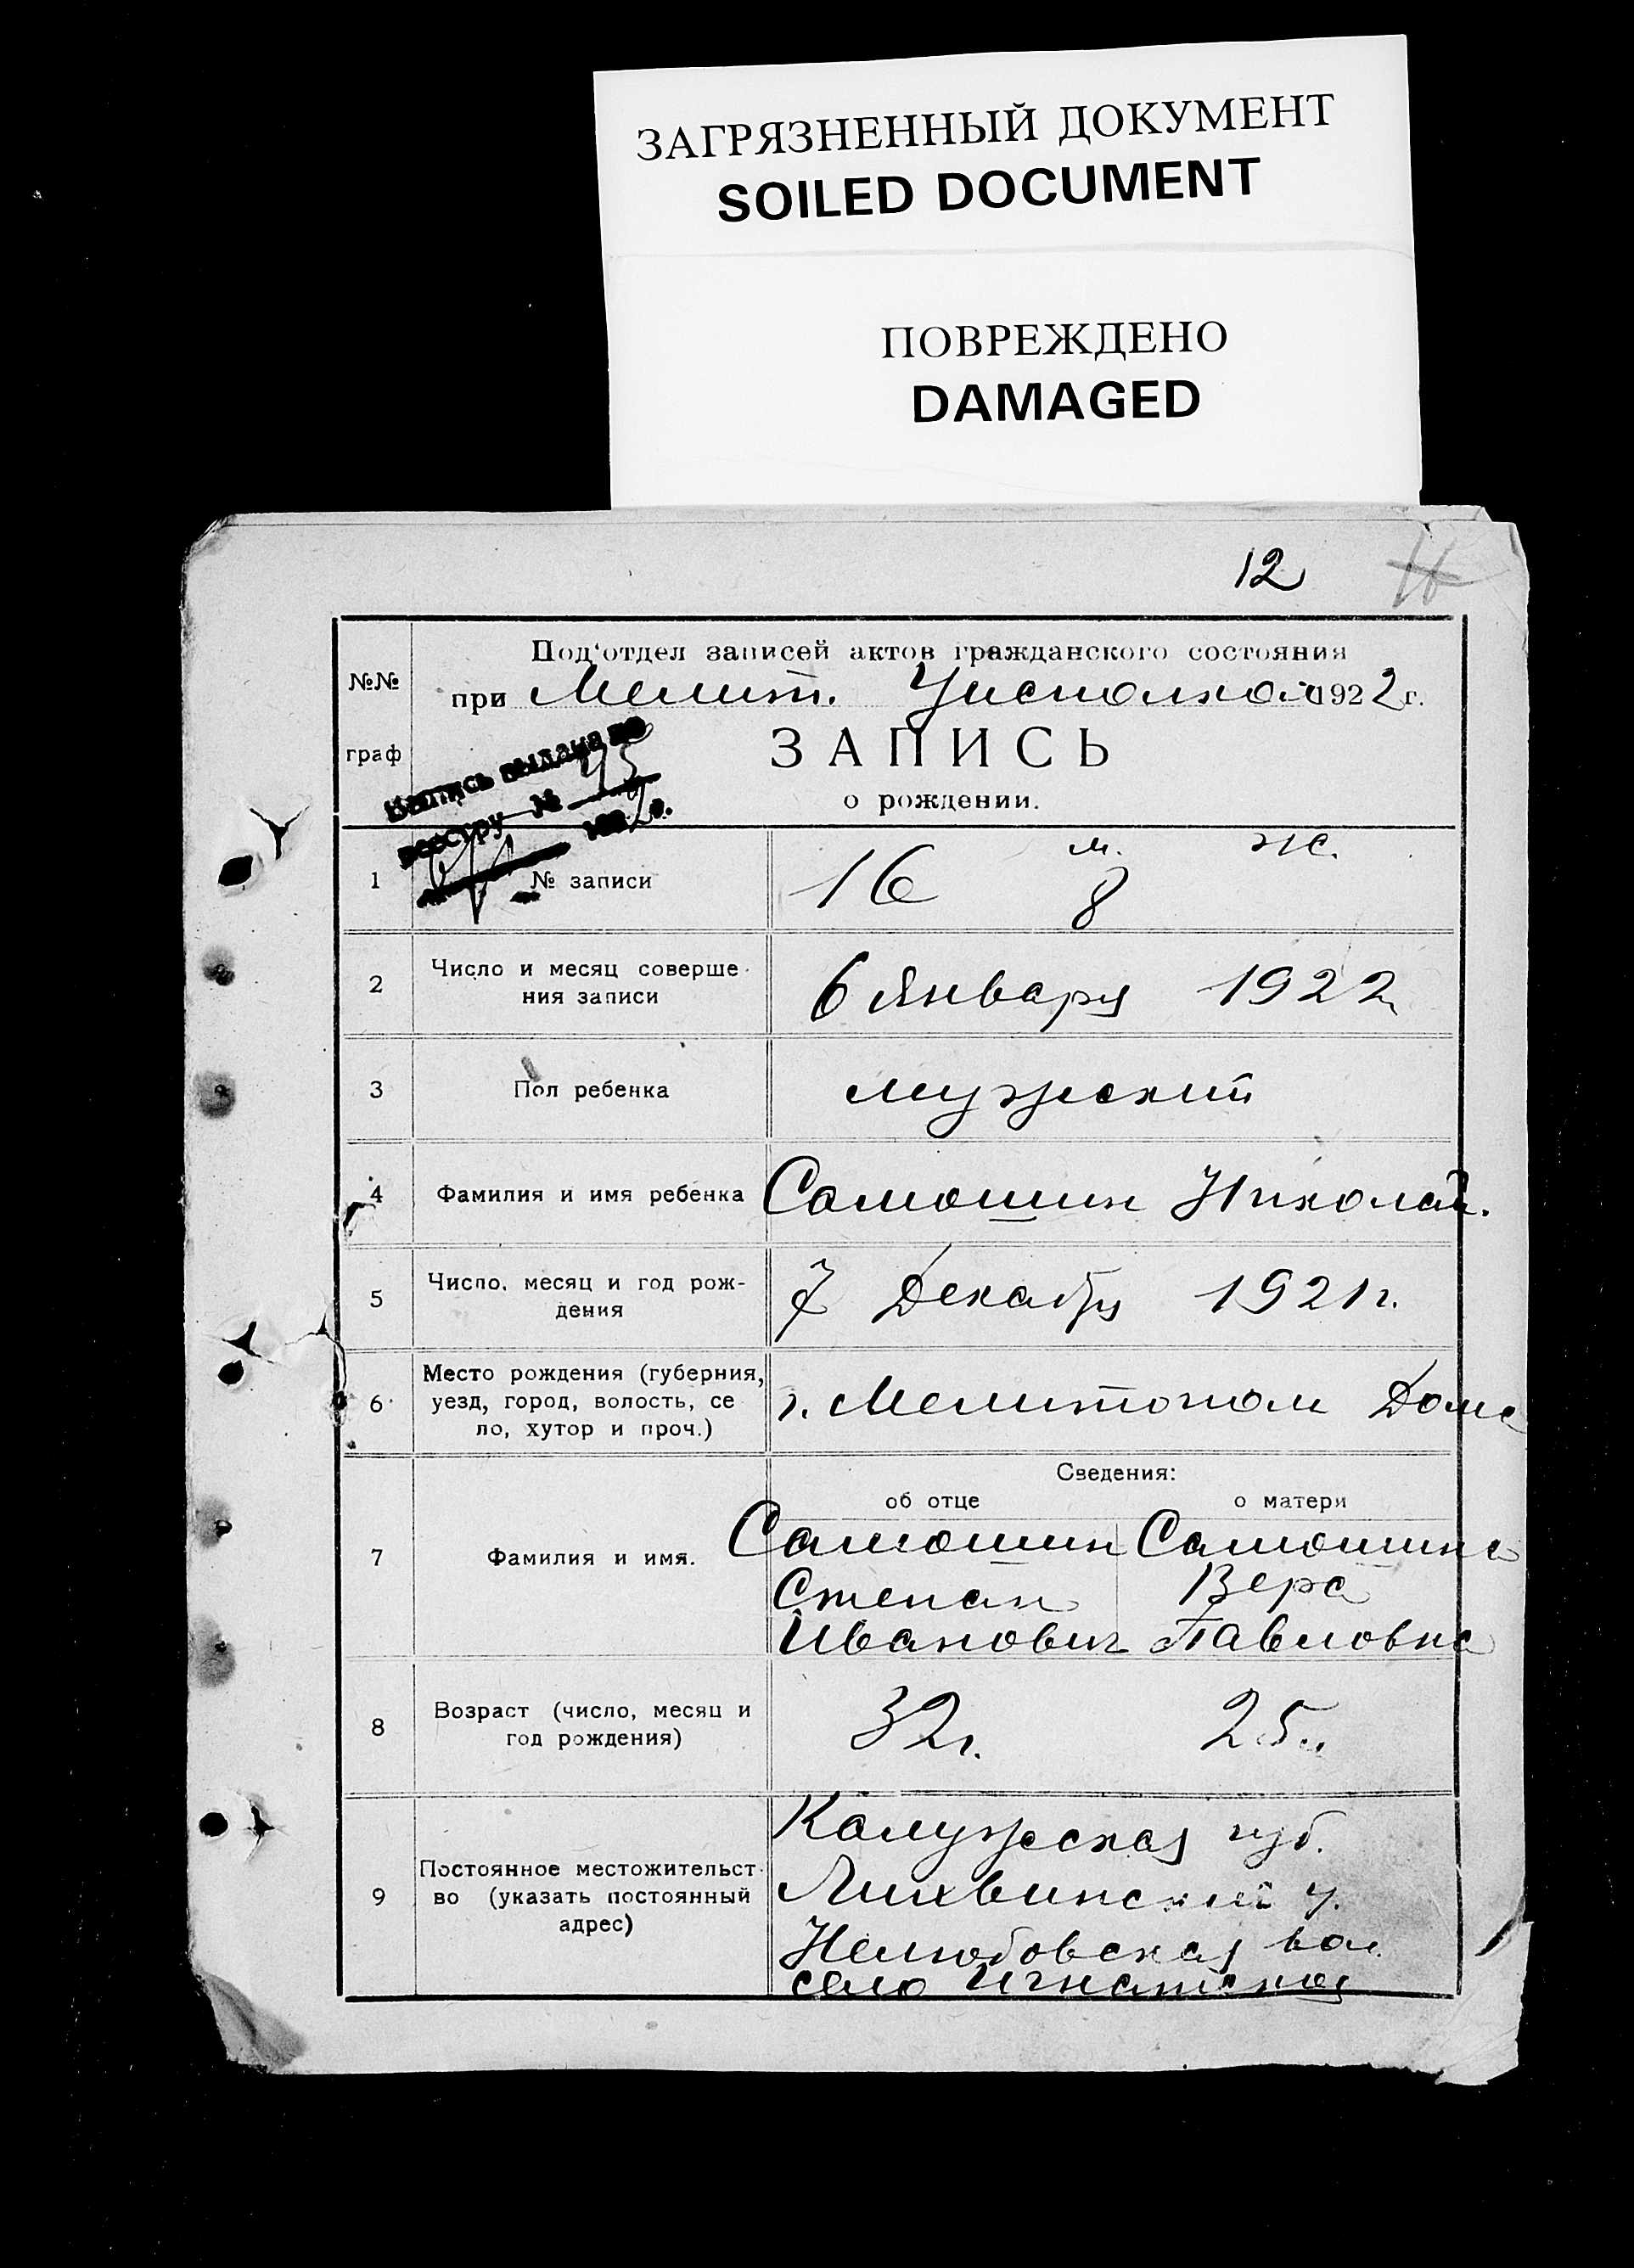 ЗАГРЯЗНЕННЫЙ ДОКУМЕНТ
SOILED DOCUMENT
ПОВРЕЖДЕНО
DAMAGED
12
№№ граф
Под'отдел записей актов гражданского состояния
при Мелит. Уисполком 1922 г.
ЗАПИСЬ
о рождении.
Выпись выдана по
реестру № 45
192 г.
м. ж.
1 № записи 16 8
2 Число и месяц соверше-
ния записи 6 Января 1922
3 Пол ребенка мужский
4 Фамилия и имя ребенка Самошин Николай.
5 Число, месяц и год рож-
дения 7 Декабря 1921 г.
Место рождения (губерния,
6 уезд, город, волость, се г. Мелитополь Дома
ло, хутор и проч.)
Сведения:
об отце о матери
7 Фамилия и имя. Самошин Самошина
Степан Вера
Иванович Павловна
8 Возраст (число, месяц и
год рождения) 32 г. 25 "
Калужская губ.
Постоянное местожительст-
9 во (указать постоянный Лихвинский у.
адрес)
Нелюбовская вол.
село Игнатская